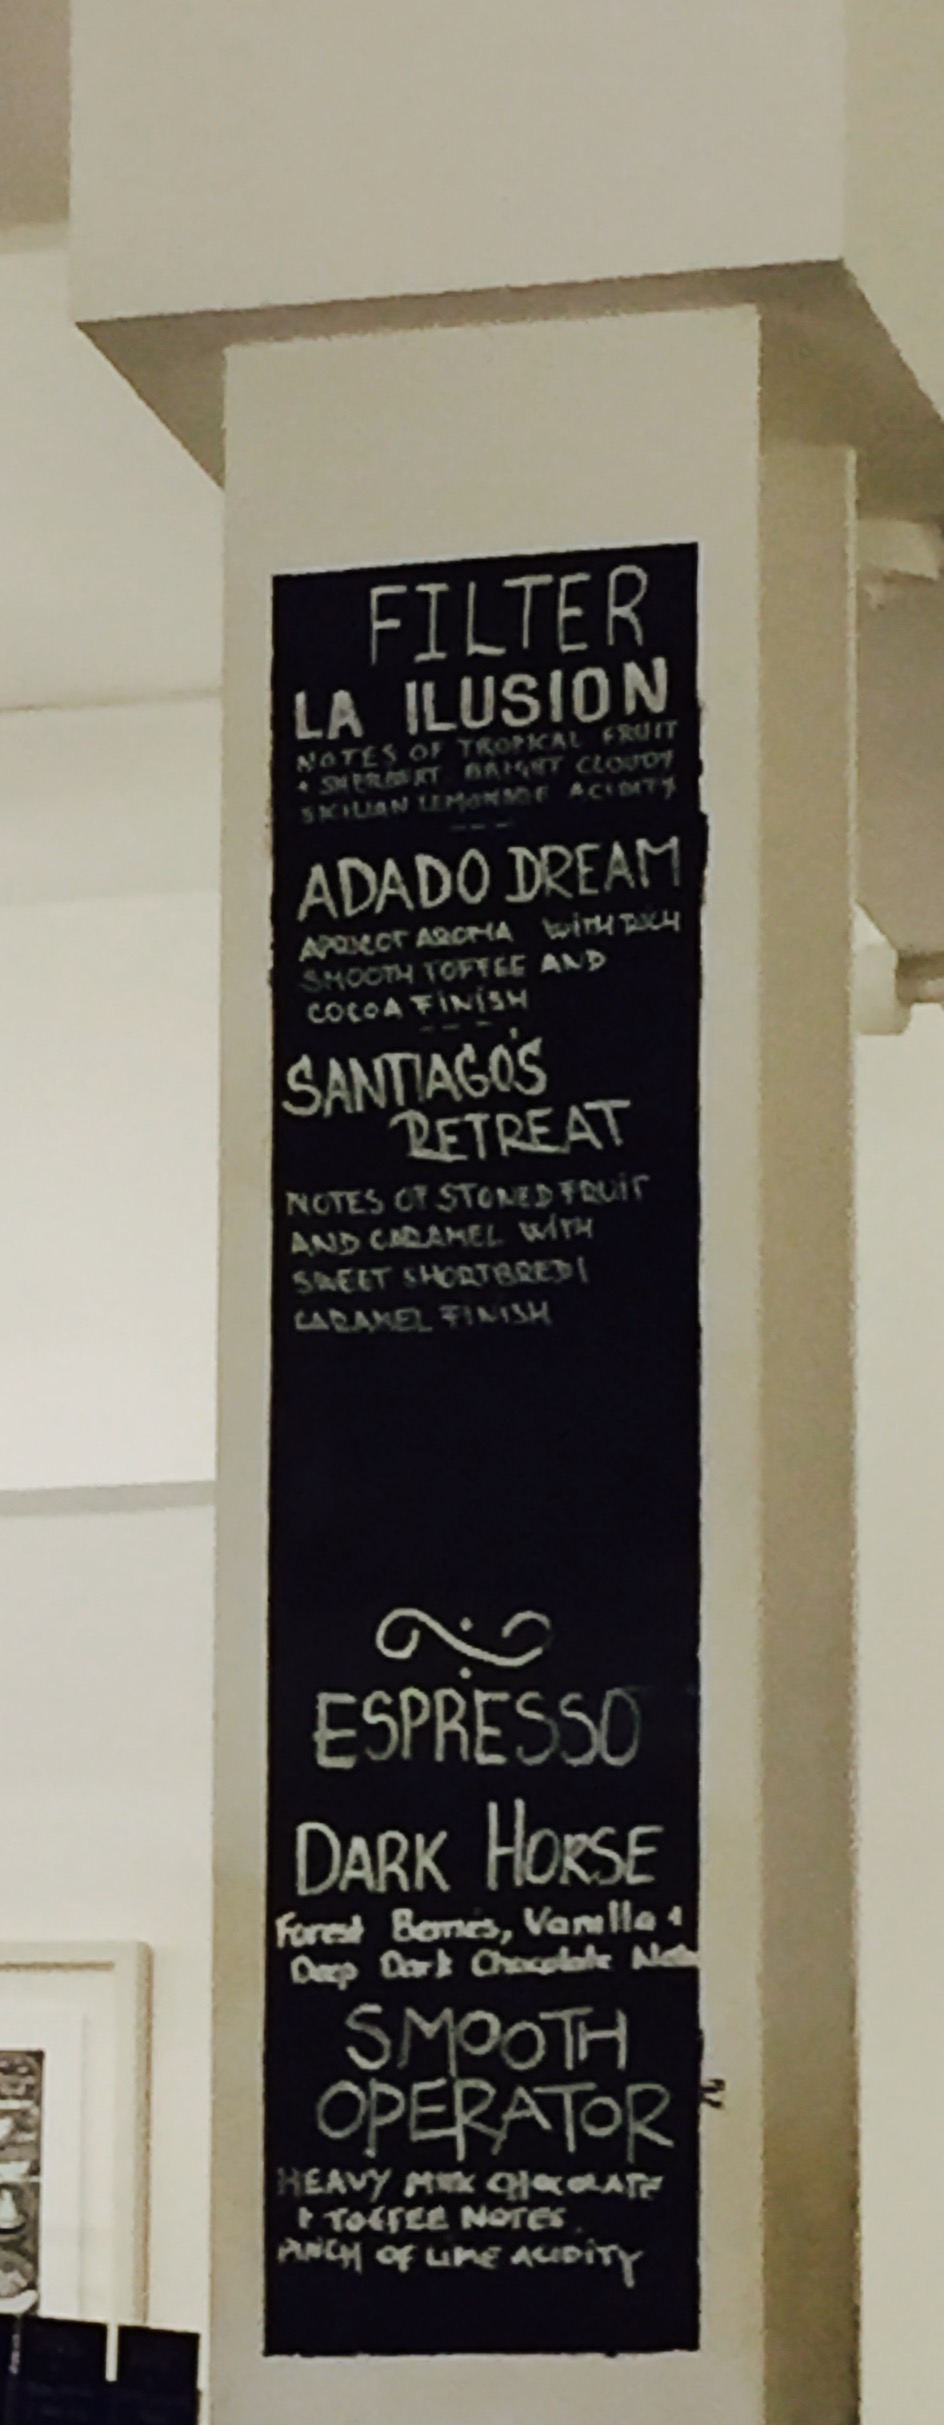 FILTER
LA ILUSION
NOTES OF TROPICAL FRUIT
+ SHERBERT BRIGHT CLOUDY
SICILIAN LEMONADE ACIDITY
---
ADADO DREAM
APRICOT AROMA WITH RICH
SMOOTH TOFFEE AND
COCOA FINISH
---
SANTIAGO'S
RETREAT
NOTES OF STONED FRUIT
AND CARAMEL WITH
SWEET SHORTBRED |
CARAMEL FINISH
ESPRESSO
DARK HORSE
Forest Berries, Vanilla +
Deep Dark Chocolate Notes
SMOOTH
OPERATOR
HEAVY MILK CHOCOLATE
+ TOFFEE NOTES.
PUNCH OF LIME ACIDITY